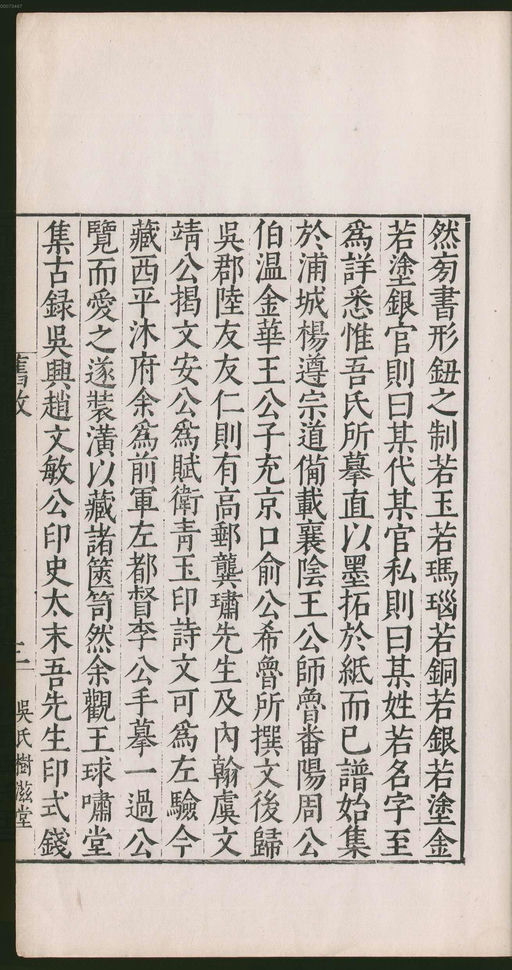 然旁書形鈕之制若玉若瑪瑙若銅若銀若塗金
若塗銀官則曰某代某官私則曰某姓若名字至
爲詳悉惟吾氏所摹直以墨拓於紙而已譜始集
於浦城楊遵宗道備載襄陰王公師魯番陽周公
伯温金華王公子充京口俞公希魯所撰文後歸
吳郡陸友友仁則有高郵龔璛先生及內翰虞文
靖公揭文安公爲賦衛青玉印詩文可爲左驗今
藏西平沐府余爲前軍左都督李公手摹一過公
覽而愛之遂裝潢以藏諸篋笥然余觀王球嘯堂
集古録吳興趙文敏公印史太末吾先生印式錢
舊敘
三
吳氏樹滋堂
00073467